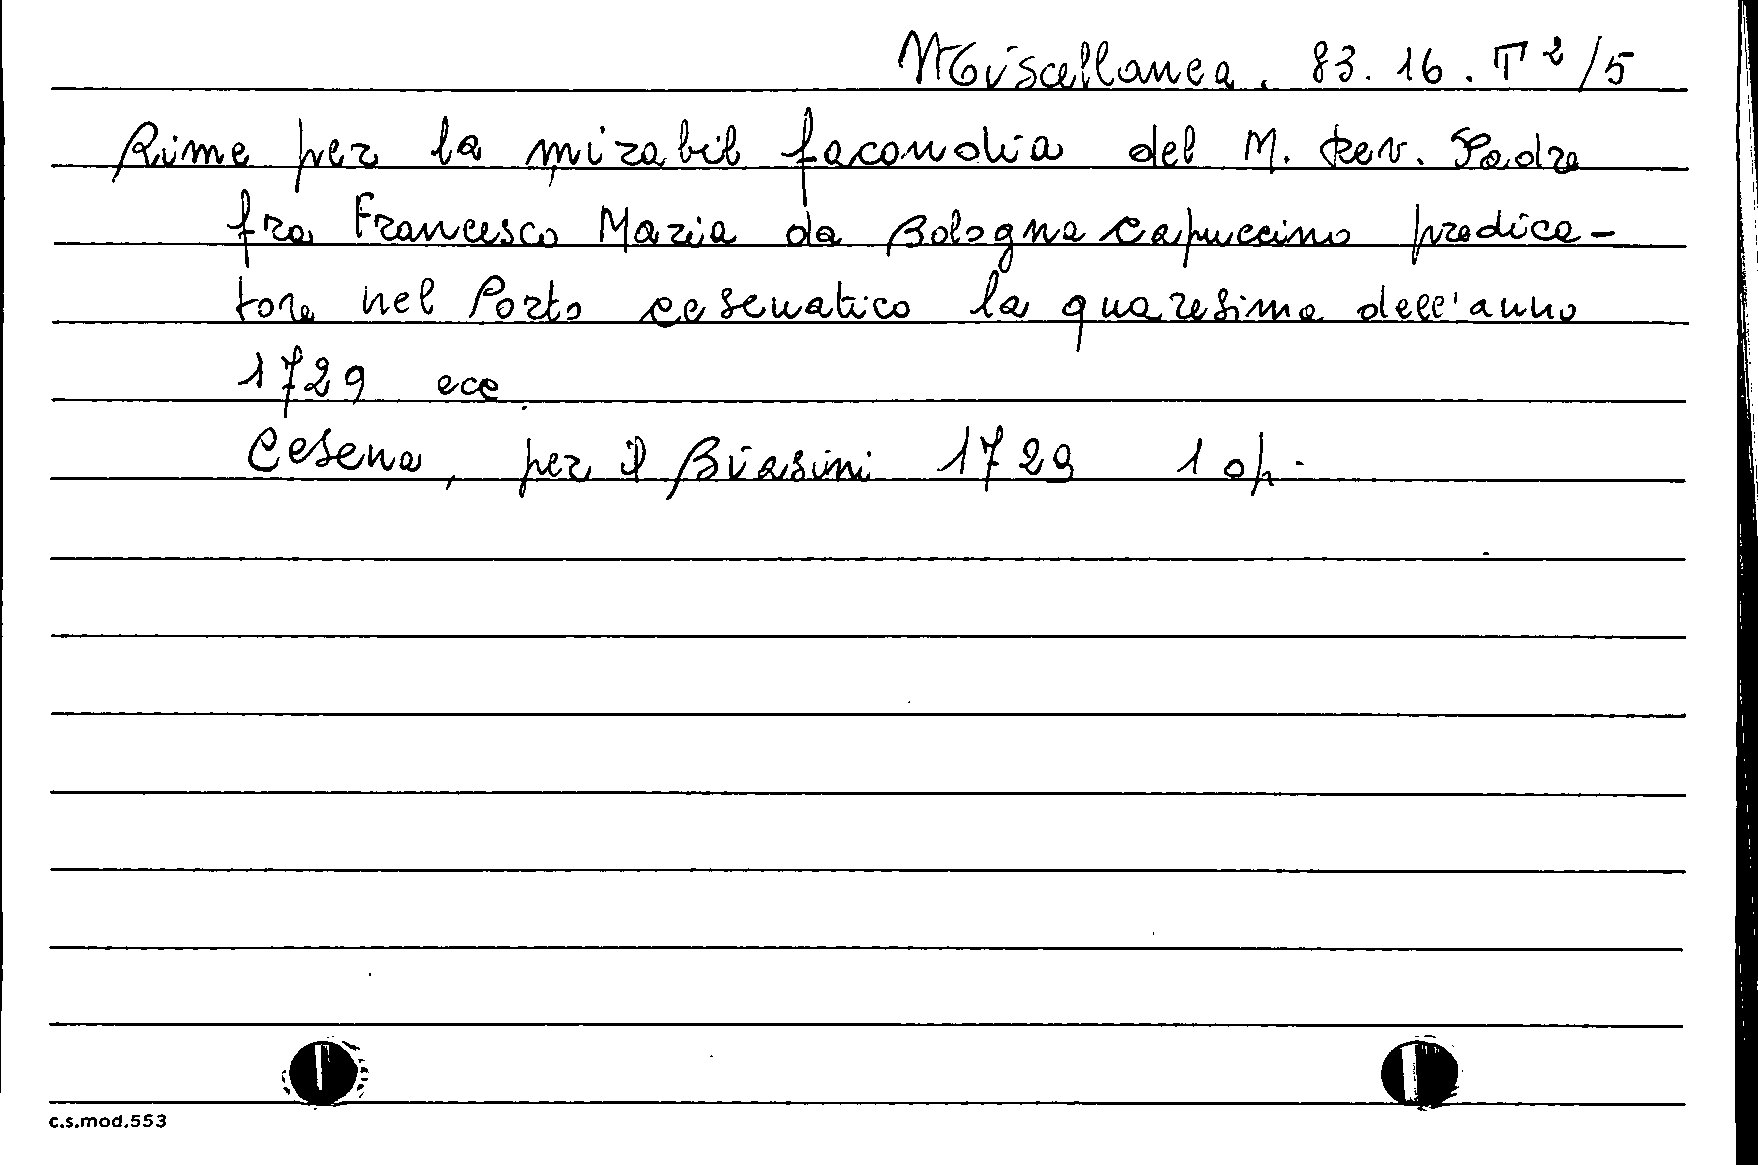 Miscellanea. 83. 16. T²/5
Rime per la mirabil facondia del M. Rev. Padre
fra Francesco Maria da Bologna Capuccino predica-
tore nel Porto cesenatico la quaresima dell'anno
1729 ecc.
Cesena, per il Biasini 1729 1 op.
c.s.mod.553